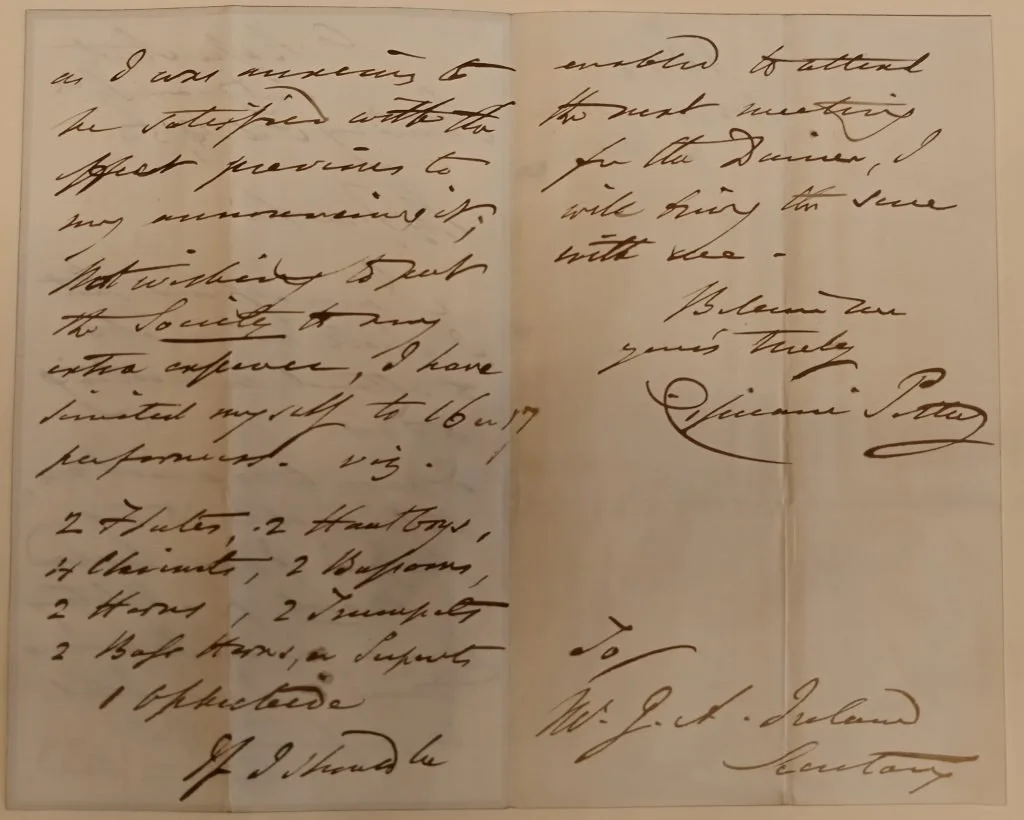 as I was anxious to
be satisfied with the
effect previous to
my announcing it;
Not wishing to put
the Society to any
extra expense, I have
limited myself to 16 or 17
performers. viz.
2 Flutes, 2 Hautboys,
4 Clarinets, 2 Bassoons,
2 Horns, 2 Trumpets
2 Bass Horns, or Serpents
1 Ophicleide
If I should be
enabled to attend
the next meeting
for the Dinner, I
will bring the same
with me.
Believe me
yours truly
Cipriani Potter
To
Mr. J. A. Ireland
Secretary